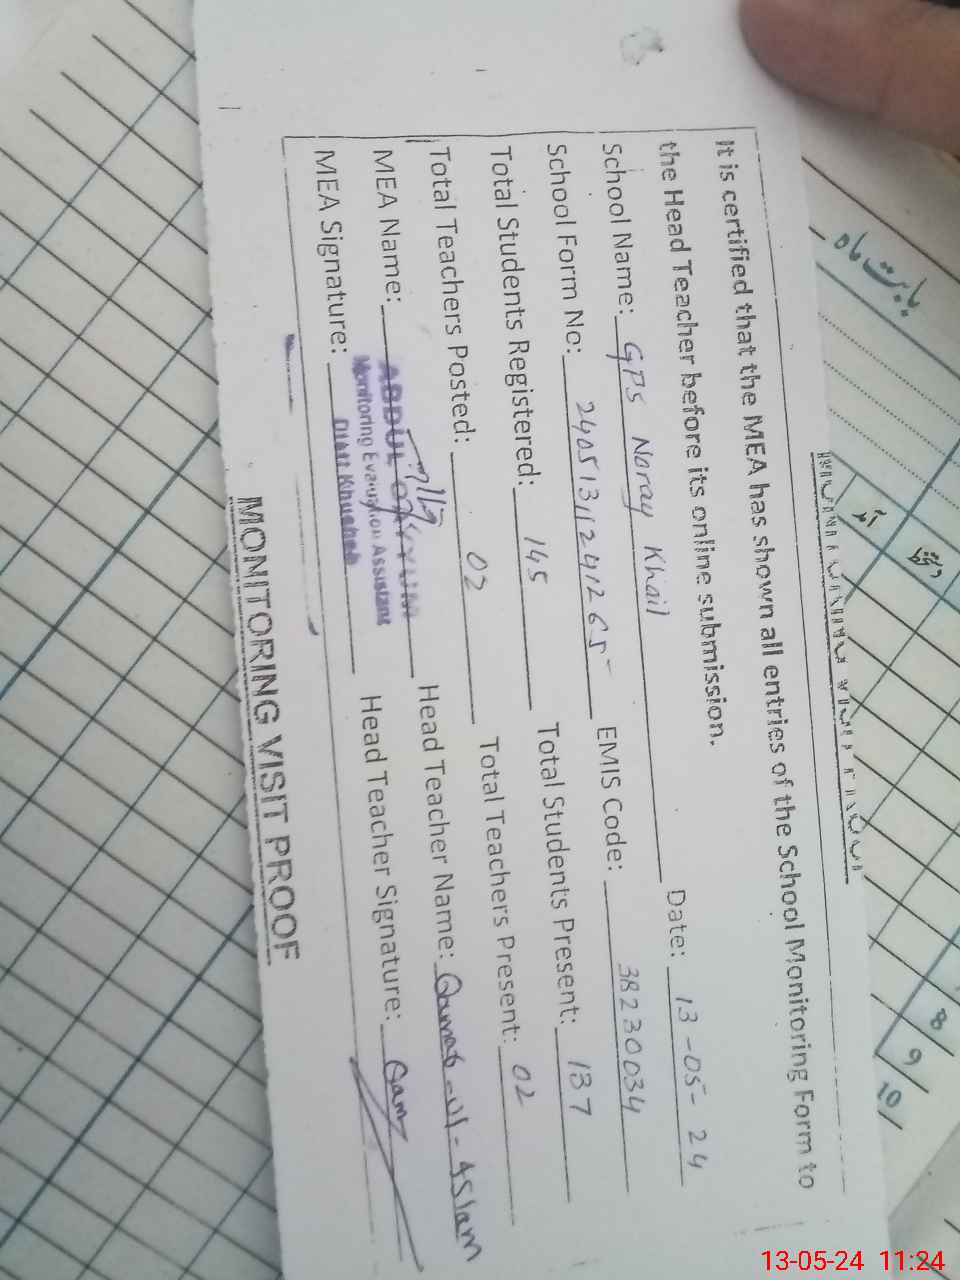 It is certified that the MEA has shown all entries of the School Monitoring Form to
the Head Teacher before its online submission.
School Name: GPS Noray Khail Date: 13-05-24
School Form No: 24051311241265 EMIS Code: 38230034
Total Students Registered: 145 Total Students Present: 137
Total Teachers Posted: 02 Total Teachers Present: 02
MEA Name: ABDUL Head Teacher Name: Qamat-ul-Aslam
Monitoring Evaluation Assistant
MEA Signature: Head Teacher Signature: Qam
Distt Khushab
MONITORING VISIT PROOF
بابت ماہ
آمد
8
9
10
13-05-24 11:24